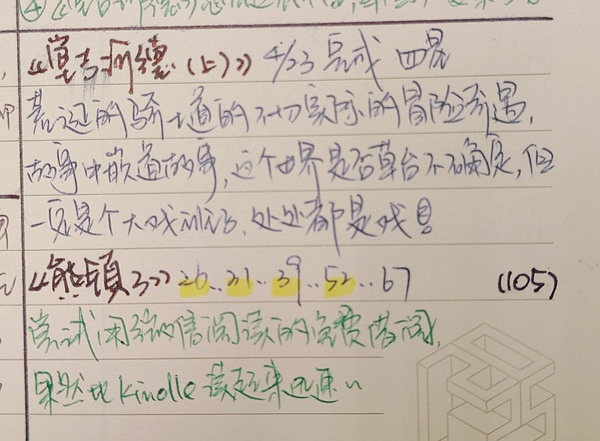 《堂吉诃德(上)》 4/23 完成 四星
荒诞的骑士道的不切实际的冒险奇遇,
故事中嵌着故事,这个世界是否草台不确定,但
一定是个大戏剧了,处处都是戏
《熊镇3》 26..31..39..52..67 (105)
尝试用微信阅读的免费借阅,
果然比Kindle读起来迅速